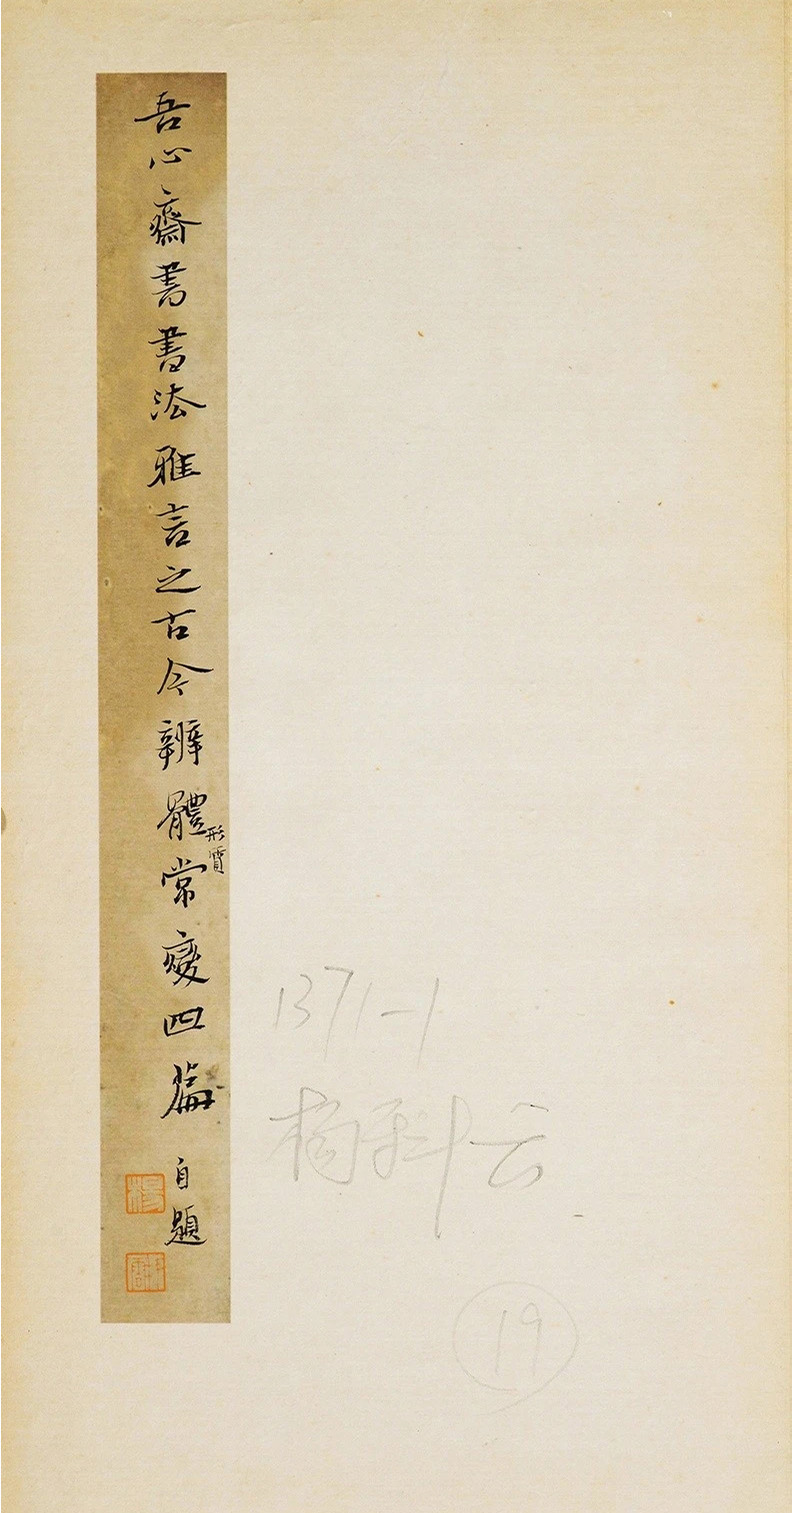 吾心齋書書法雅言之古今辨體常變四篇
形質
自題
楊
1371-1
19